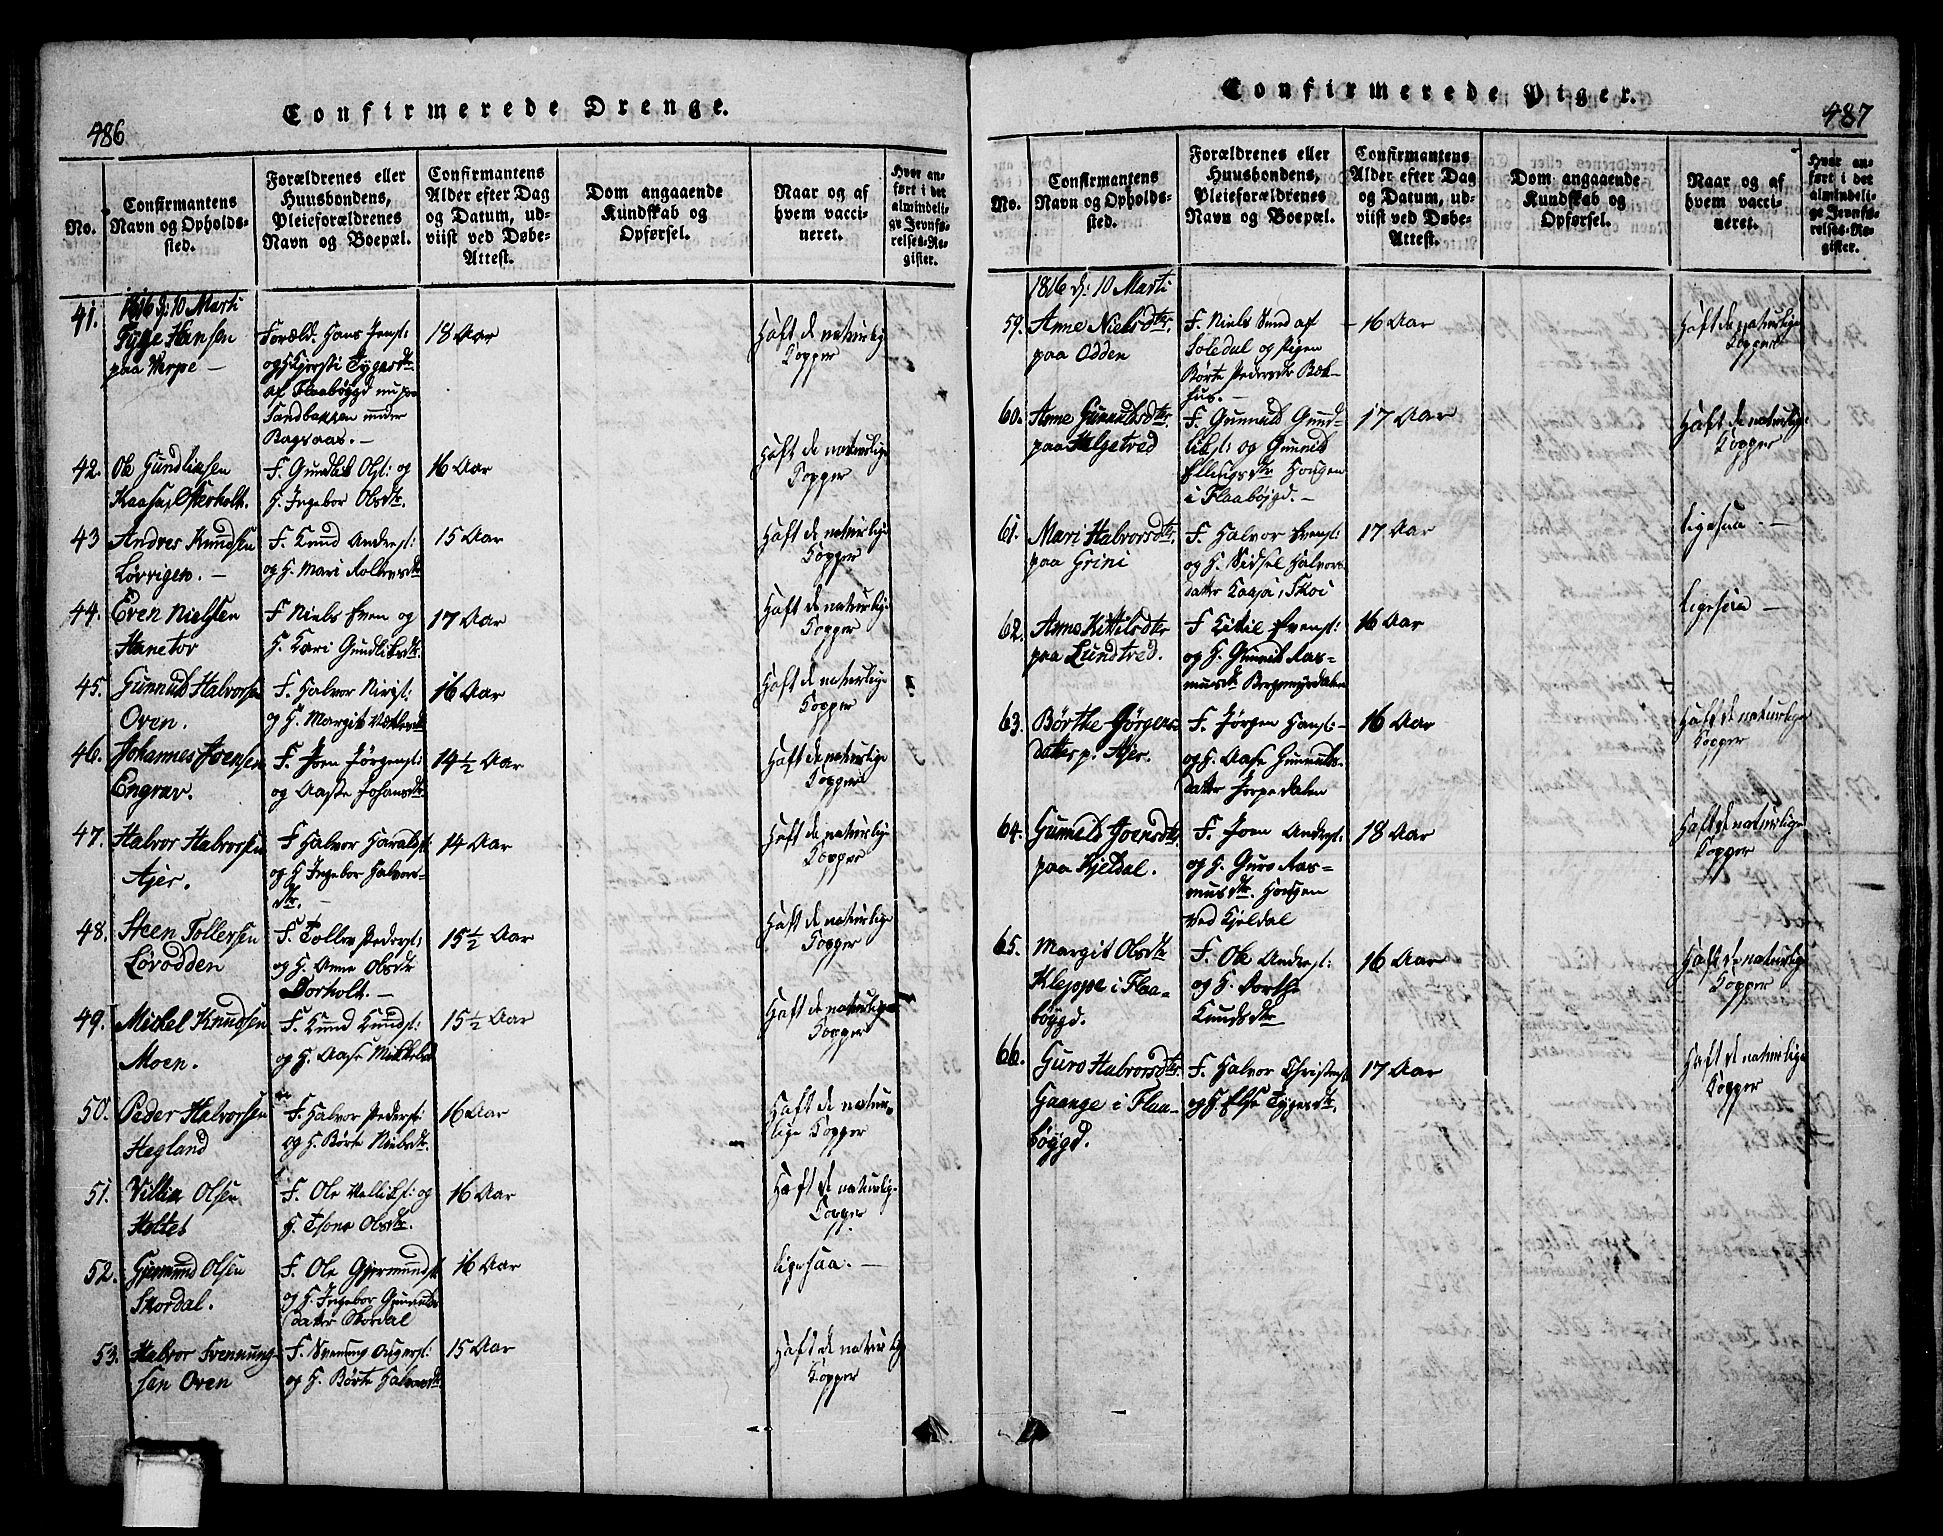 486
Confirmerede Drenge.
No.
Confirmantens
Navn og Opholds-
sted.
Forældrenes eller
Huusbondens,
Pleieforældrenes
Navn og Boepæl.
Confirmantens
Alder efter Dag
og Datum, ud-
viist ved Døbe-
Attest.
Dom angaaende
Kundskab og
Opførsel.
Naar og af
hvem vacci-
neret.
Hvor an-
ført i det
almindeli-
ge Jevnfø-
relses-Re-
gister.
1816 d: 10 Marti
41.
Tyge Hansen
paa Verpe —
Foræld. Hans Jensl:
og H Kjersti Tygesdtr
af Flaabøygd nu paa
Sandbakken under
Bagsaas. —
18 Aar
Haft de naturlig
Kopper
42.
Ole Gundliksen
Kaasa, Østerholt.
F. Gundlik Olsl: og
H. Ingebor Olsdtr.
16 Aar
Haft de naturlige
Kopper
43
Andres Knudsen
Løvrigen. —
F. Knud Andersl:
og H. Mari
15 Aar
Haft de naturlige
Kopper
44.
Even Nielsen
Hanetor
F Niels Even og
H. Kari Gundliksdtr.
17 Aar
Haft de naturlige
Kopper
45.
Gunnuld Halvorsen
Oven.
F. Halvor
og H. Margit
16 Aar
Haft de naturlige
Kopper
46.
Johannes Joensen
Engrav.
F. Joen Jørgensl:
og Aaste Johansdtr.
14 1/2 Aar
Haft de naturlige
Kopper
47.
Halvor Halvorsen
Ajer.
F Halvor Haralds:
og H Ingebor Halvors-
dtr. —
14 Aar
Haft de naturlige
Kopper
48.
Steen Tollefsen
Løvodden
F. Tollev Pedersl:
og H. Anne Olsdtr
Dorholt. —
15 1/2 Aar
Haft de naturlige
Kopper
49.
Mickel Knudsen
Moen.
F. Knud Knudsl:
og H. Aase
15 1/2 Aar
Haft de naturlige
Kopper
50.
Peder Halvorsen
Hegland
F. Halvor Pedersl:
og H. Børte Nielsdtr.
16 Aar
Haft de natur-
lige Kopper
51.
Villik Olsen
Holtet
F. Ole Velliksl: og
H. Tone Olsdtr.
16 Aar
Haft de naturlig-
Kopper
52.
Gjermund Olsen
Skordal.
F. Ole Gjermunds
og H. Ingebor Gunnulds
datter Skordal
16 Aar
ligesaa. —
53.
Halvor Svennung-
sen Oven
F. Svenung
og H. Børte Halvorsdtr.
15 Aar
Haft de naturlig
Kopper
487
Confirmerede Piger.
No.
Confirmantens
Navn og Opholds-
sted.
Forældrenes eller
Huusbondens,
Pleieforældrenes
Navn og Boepæl.
Confirmantens
Alder efter Dag
og Datum, ud-
viist ved Døbe-
Attest.
Dom angaaende
Kundskab og
Opførsel.
Naar og af
hvem vacci-
neret.
Hvor an-
ført i det
almindeli-
ge Jevnfø-
relses-Re-
gister.
1816 d: 10 Marti
59.
Anne Nielsdtr.
paa Odden
F. Niels Svend af
Soledal og Pigen
Børte Pedersdtr Bek-
hus. —
16 Aar
Haft de naturlige
Kopper
60.
Anne Gunnuldsdtr.
paa Helgetved
F. Gunnuld Gund-
liksl: og Gunnild
Ellingsdtr Haugen
i Flaabøygd. —
17 Aar
Haft de naturlig:
Kopper
61.
Mari Halvorsdtr.
paa Grini
F. Halvor Evensl:
og H. Sidsel Halvors-
datter Kaasa, Skoi
17 Aar
ligesaa. —
62.
Anne Kittilsdtr
paa Lundtved.
F Kittil Evensl:
og H. Gunnild Aas-
musdtr. Bergmyrdalen
16 Aar
ligesaa —
63.
Børthe Jørgens-
datter p. Ajer.
F. Jørgen Hansl: -
og H. Aase Gunnulds-
datter Jorpedalen
16 Aar
Haft de naturlige
Kopper
64.
Gunnild Joensdtr.
paa Kjeldal.
F. Joen Andersl:
og H. Guro Aas-
musdtr. Haugen
ved Kjeldal
18 Aar
Haft de naturlige
Kopper
65.
Margit Olsdtr
Kleppe i Flaa-
bøygd.
F. Ole Andersl:
og H. Dorthe
Knudsdtr
16 Aar
Haft de naturlige
Kopper
66.
Guro Halvorsdtr.
Gaange i Flaa-
bøygd.
F. Halvor Christensl
og H. Else Tygesdtr.
17 Aar
Haft de naturlige
Kopper